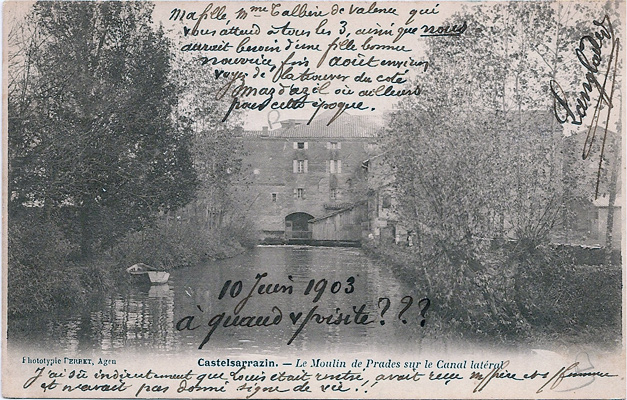 ma fille, Mme Talbère de valence qui
vous attend à tous les 3, ainsi que nous
aurait besoin d'une fille bonne
nouvrice, fors août environ
voyez de la trouver du coté
Maz d'azil ou ailleurs
pour cette époque.
10 Juin 1903
à quand v/ visite???
Phototypie PERRET, Agen
Castelsarrazin. — Le Moulin de Prades sur le Canal latéral
J'ai su indirectement que Louis était rentré, avait reçu et femme
et n'avait pas donné signe de vie!!